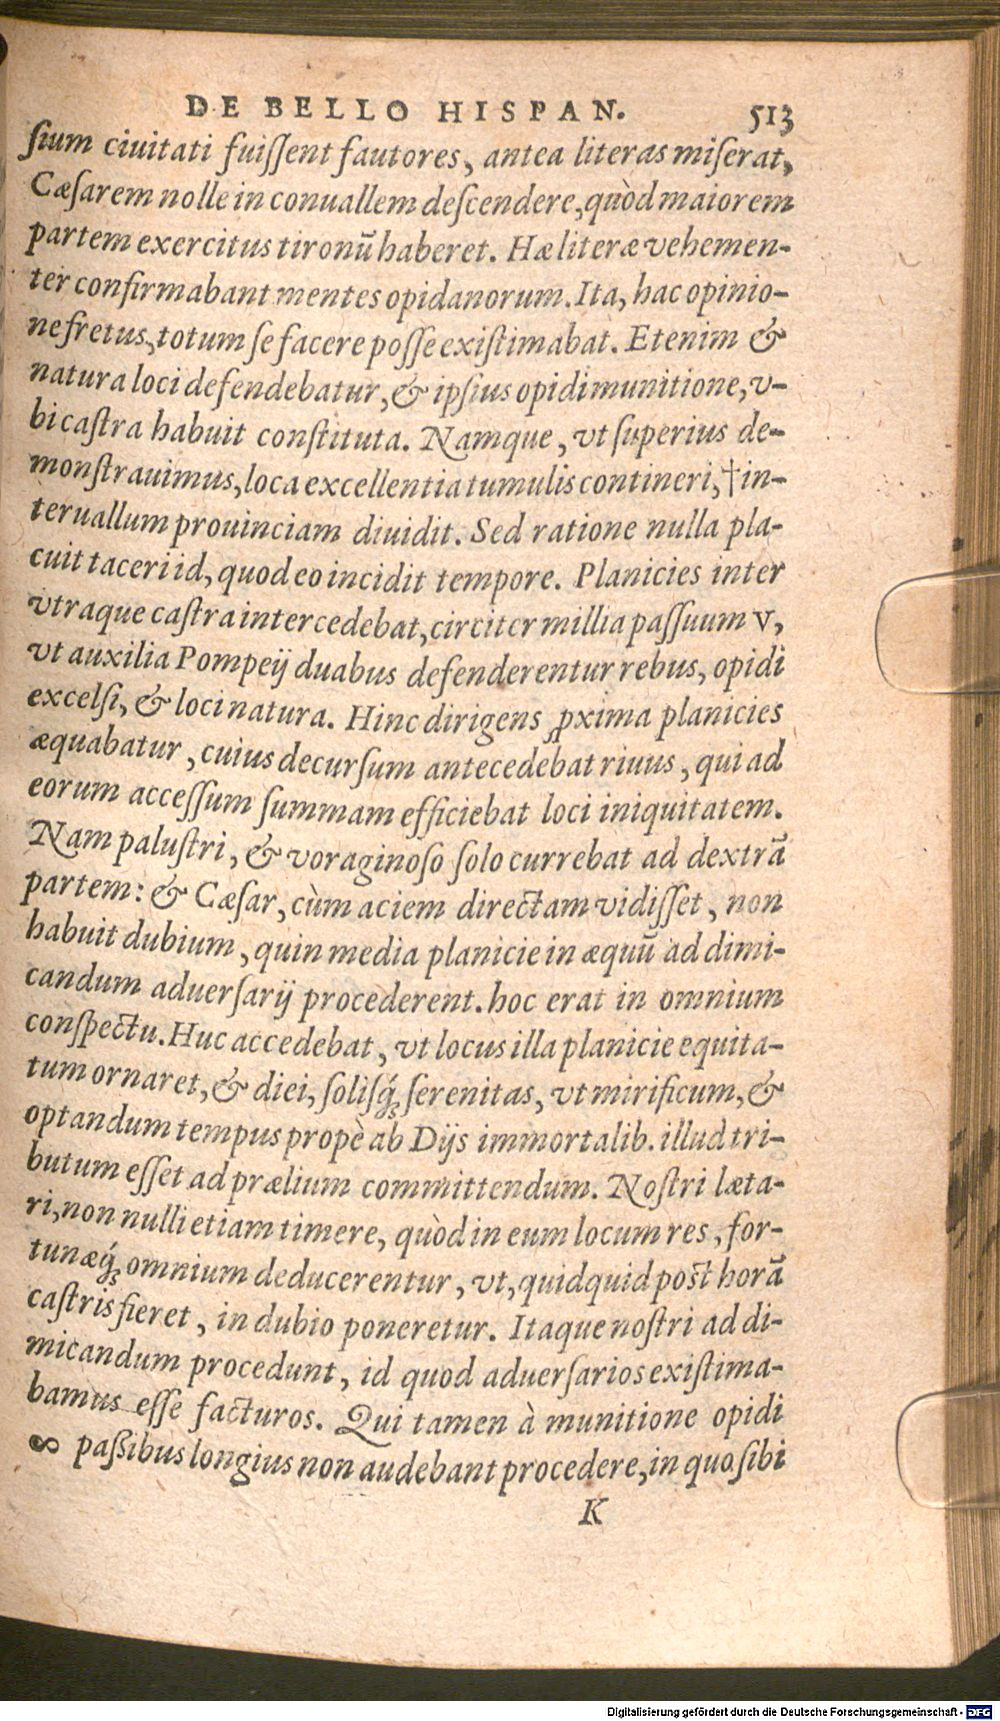 DE BELLO HISPAN. 513
ſium ciuitati fuiſſent fautores, antea literas miſerat,
Cæſarem nolle in conuallem deſcendere, quòd maiorem
partem exercitus tironũ haberet. Hæ literæ vehemen-
ter confirmabant mentes opidanorum. Ita, hac opinio-
ne fretus, totum ſe facere poſſe exiſtimabat. Etenim &
natura loci defendebatur, & ipſius opidi munitione, v-
bi caſtra habuit conſtituta. Namque, vt ſuperius de-
monſtrauimus, loca excellentia tumulis contineri, † in-
teruallum prouinciam diuidit. Sed ratione nulla pla-
cuit taceri id, quod eo incidit tempore. Planicies inter
vtraque caſtra intercedebat, circiter millia paſſuum V,
vt auxilia Pompeij duabus defenderentur rebus, opidi
excelſi, & loci natura. Hinc dirigens ꝓxima planicies
æquabatur, cuius decurſum antecedebat riuus, qui ad
eorum acceſſum ſummam efficiebat loci iniquitatem.
Nam paluſtri, & voraginoſo ſolo currebat ad dextrã
partem: & Cæſar, cùm aciem directam vidiſſet, non
habuit dubium, quin media planicie in æquũ ad dimi-
candum aduerſarij procederent. hoc erat in omnium
conſpectu. Huc accedebat, vt locus illa planicie equita-
tum ornaret, & diei, ſolisq́; ſerenitas, vt mirificum, &
optandum tempus propè ab Dijs immortalib. illud tri-
butum eſſet ad prælium committendum. Noſtri læta-
ri, non nulli etiam timere, quòd in eum locum res, for-
tunæq́; omnium deducerentur, vt, quidquid poſt horã
caſtris fieret, in dubio poneretur. Itaque noſtri ad di-
micandum procedunt, id quod aduerſarios exiſtima-
bamus eſſe facturos. Qui tamen à munitione opidi
∞ paſsibus longius non audebant procedere, in quo ſibi
K
Digitalisierung gefördert durch die Deutsche Forschungsgemeinschaft - DFG